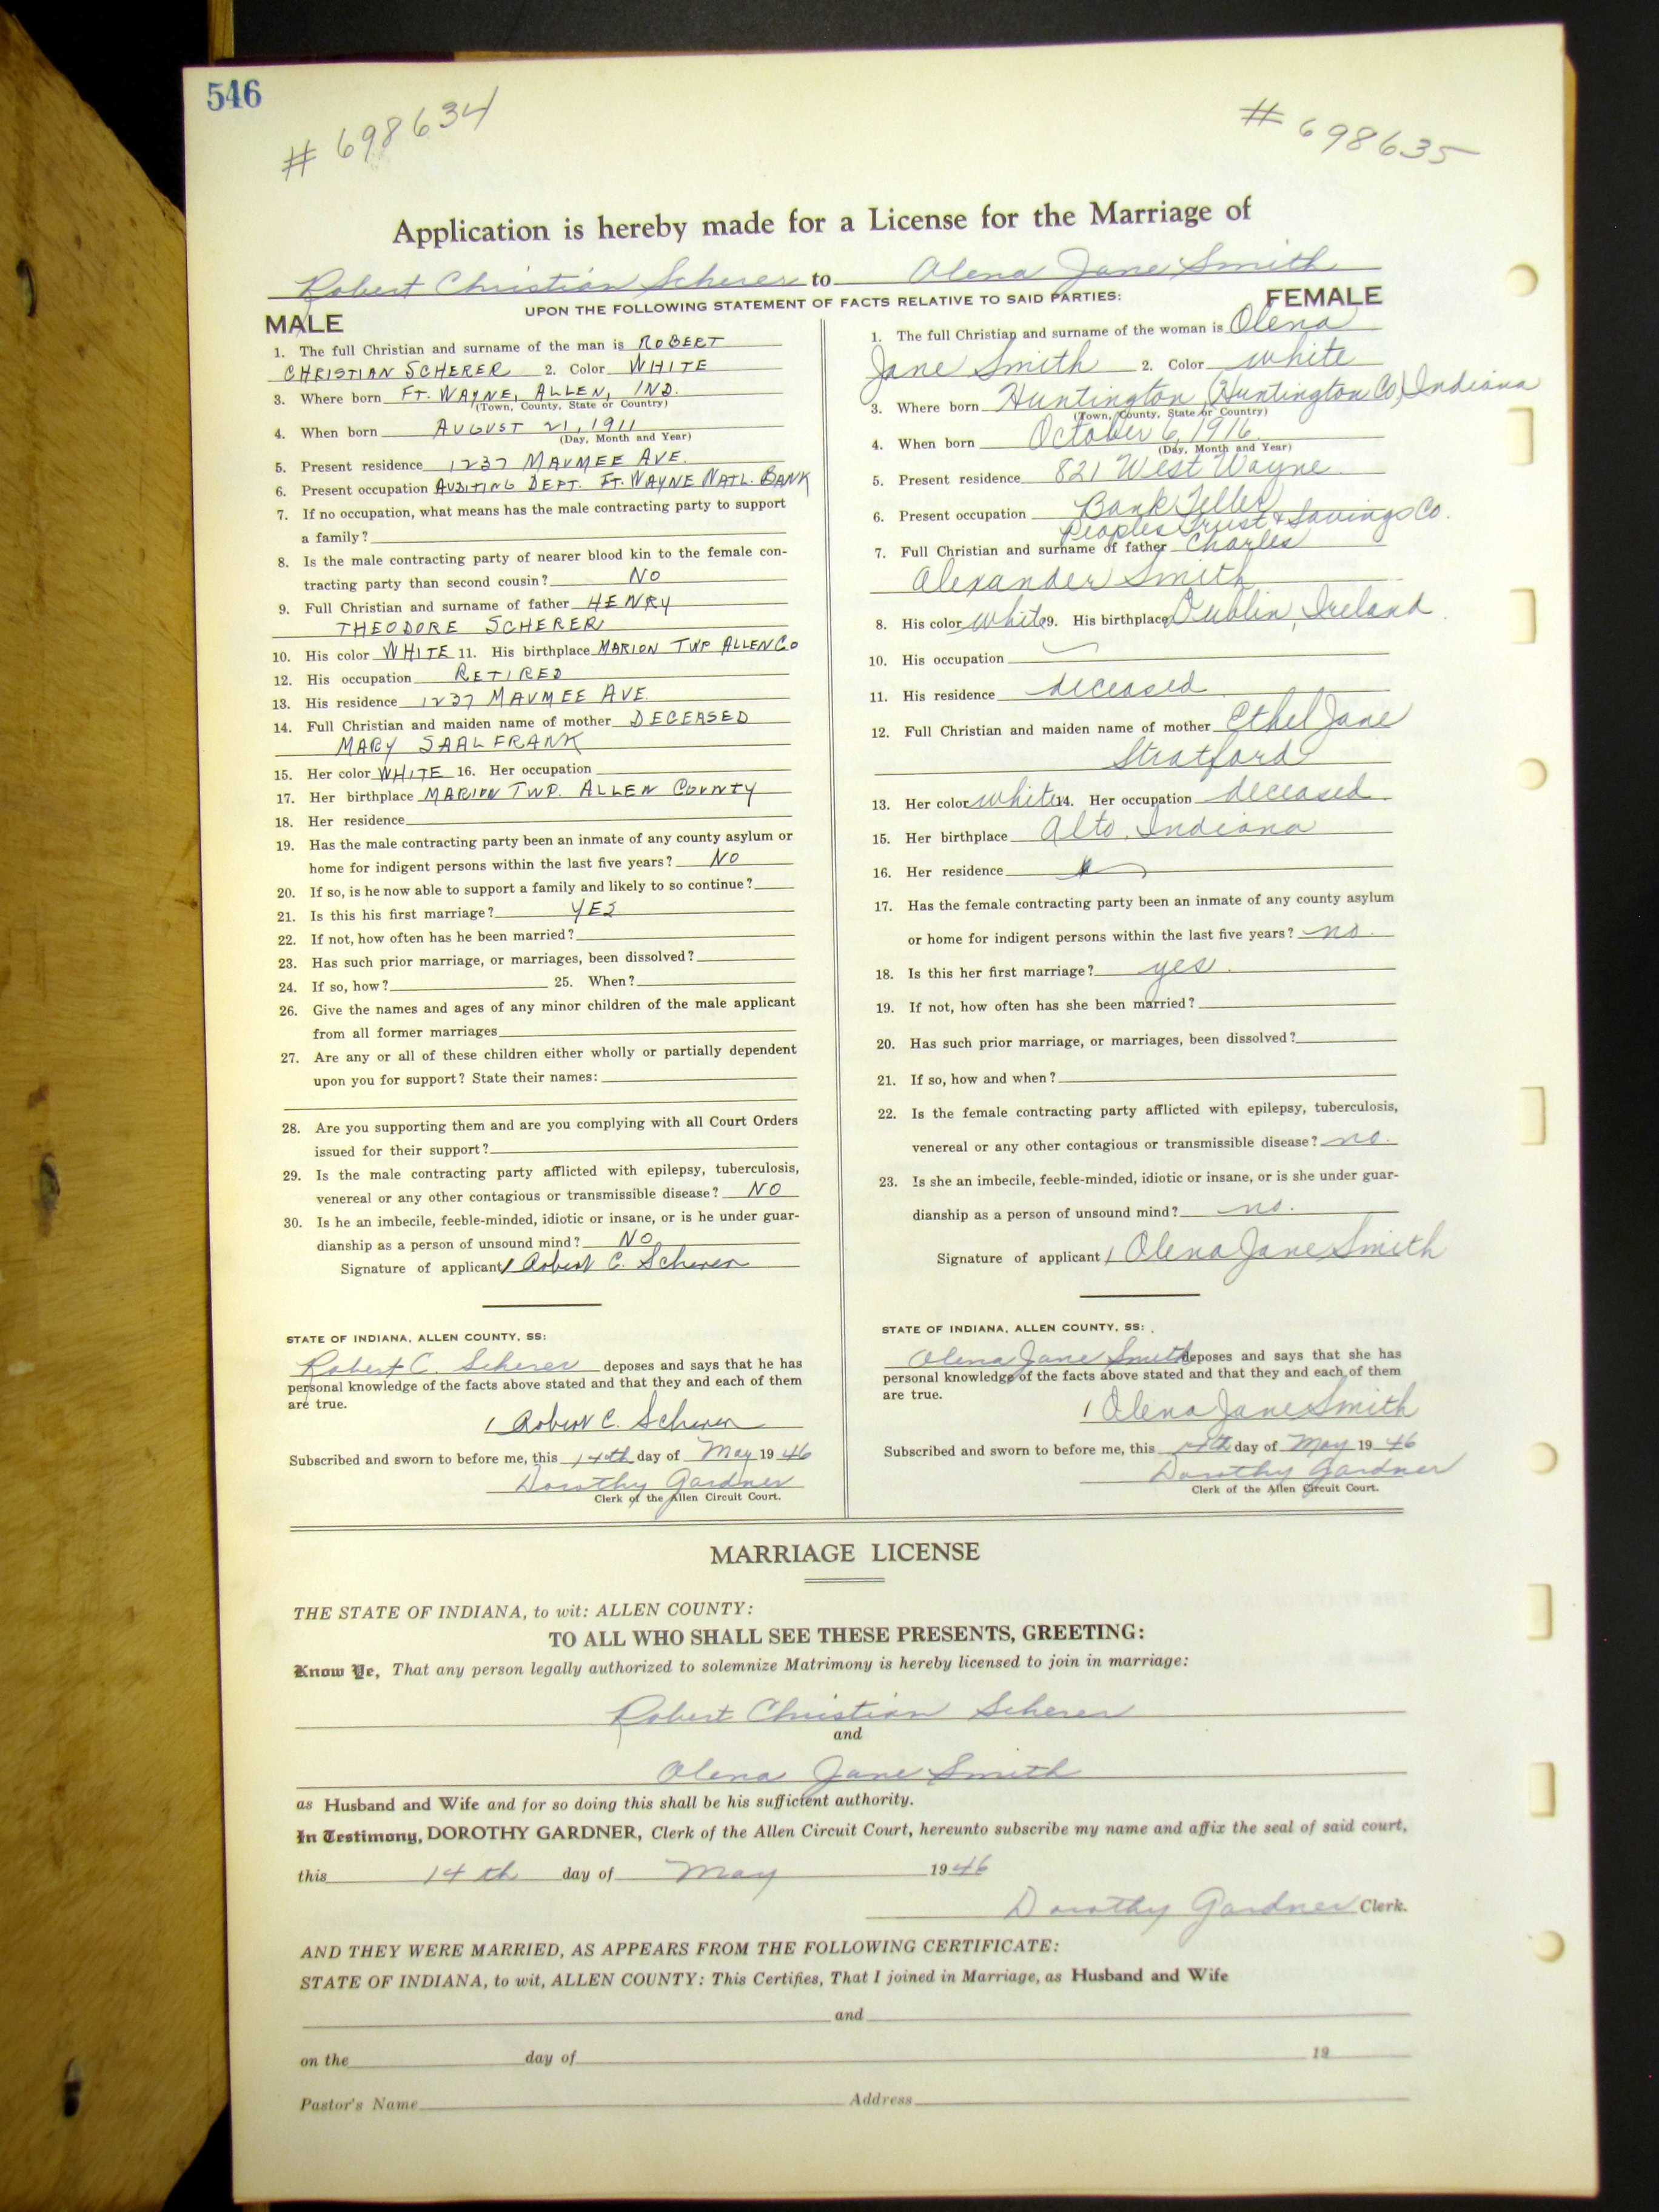 546
# 698634
# 698635
Application is hereby made for a License for the Marriage of
Robert Christian Scherer to Olena Jane Smith
UPON THE FOLLOWING STATEMENT OF FACTS RELATIVE TO SAID PARTIES:
MALE
1. The full Christian and surname of the man is ROBERT
CHRISTIAN SCHERER 2. Color WHITE
3. Where born FT. WAYNE, ALLEN, IND.
(Town, County, State or Country)
4. When born AUGUST 21, 1911
(Day, Month and Year)
5. Present residence 1237 MAUMEE AVE.
6. Present occupation AUDITING DEPT. FT. WAYNE NATL. BANK
7. If no occupation, what means has the male contracting party to support
a family?
8. Is the male contracting party of nearer blood kin to the female con-
tracting party than second cousin? NO
9. Full Christian and surname of father HENRY
THEODORE SCHERER
10. His color WHITE 11. His birthplace MARION TWP ALLEN CO
12. His occupation RETIRED
13. His residence 1237 MAUMEE AVE.
14. Full Christian and maiden name of mother DECEASED
MARY SAALFRANK
15. Her color WHITE 16. Her occupation
17. Her birthplace MARION TWP. ALLEN COUNTY
18. Her residence
19. Has the male contracting party been an inmate of any county asylum or
home for indigent persons within the last five years? NO
20. If so, is he now able to support a family and likely to so continue?
21. Is this his first marriage? YES
22. If not, how often has he been married?
23. Has such prior marriage, or marriages, been dissolved?
24. If so, how? 25. When?
26. Give the names and ages of any minor children of the male applicant
from all former marriages
27. Are any or all of these children either wholly or partially dependent
upon you for support? State their names:
28. Are you supporting them and are you complying with all Court Orders
issued for their support?
29. Is the male contracting party afflicted with epilepsy, tuberculosis,
venereal or any other contagious or transmissible disease? NO
30. Is he an imbecile, feeble-minded, idiotic or insane, or is he under guar-
dianship as a person of unsound mind? NO
Signature of applicant Robert C. Scherer
STATE OF INDIANA, ALLEN COUNTY, SS:
Robert C. Scherer deposes and says that he has
personal knowledge of the facts above stated and that they and each of them
are true.
Robert C. Scherer
Subscribed and sworn to before me, this 14th day of May 1946
Dorothy Gardner
Clerk of the Allen Circuit Court.
FEMALE
1. The full Christian and surname of the woman is Olena
Jane Smith 2. Color white
3. Where born Huntington (Huntington Co) Indiana
(Town, County, State or Country)
4. When born October 6, 1916
(Day, Month and Year)
5. Present residence 821 West Wayne
6. Present occupation Bank Teller
Peoples Trust & Savings Co.
7. Full Christian and surname of father Charles
Alexander Smith
8. His color white 9. His birthplace Dublin, Ireland
10. His occupation
11. His residence deceased
12. Full Christian and maiden name of mother Ethel Jane
Stratford
13. Her color white 14. Her occupation deceased
15. Her birthplace Alto, Indiana
16. Her residence
17. Has the female contracting party been an inmate of any county asylum
or home for indigent persons within the last five years? no
18. Is this her first marriage? yes.
19. If not, how often has she been married?
20. Has such prior marriage, or marriages, been dissolved?
21. If so, how and when?
22. Is the female contracting party afflicted with epilepsy, tuberculosis,
venereal or any other contagious or transmissible disease? no.
23. Is she an imbecile, feeble-minded, idiotic or insane, or is she under guar-
dianship as a person of unsound mind? no.
Signature of applicant Olena Jane Smith
STATE OF INDIANA, ALLEN COUNTY, SS:
Olena Jane Smith deposes and says that she has
personal knowledge of the facts above stated and that they and each of them
are true.
Olena Jane Smith
Subscribed and sworn to before me, this 14th day of May 1946
Dorothy Gardner
Clerk of the Allen Circuit Court.
MARRIAGE LICENSE
THE STATE OF INDIANA, to wit: ALLEN COUNTY:
TO ALL WHO SHALL SEE THESE PRESENTS, GREETING:
Know Ye, That any person legally authorized to solemnize Matrimony is hereby licensed to join in marriage:
Robert Christian Scherer
and
Olena Jane Smith
as Husband and Wife and for so doing this shall be his sufficient authority.
In Testimony, DOROTHY GARDNER, Clerk of the Allen Circuit Court, hereunto subscribe my name and affix the seal of said court,
this 14th day of May 1946
Dorothy Gardner Clerk.
AND THEY WERE MARRIED, AS APPEARS FROM THE FOLLOWING CERTIFICATE:
STATE OF INDIANA, to wit, ALLEN COUNTY: This Certifies, That I joined in Marriage, as Husband and Wife
and
on the day of 19
Pastor's Name Address